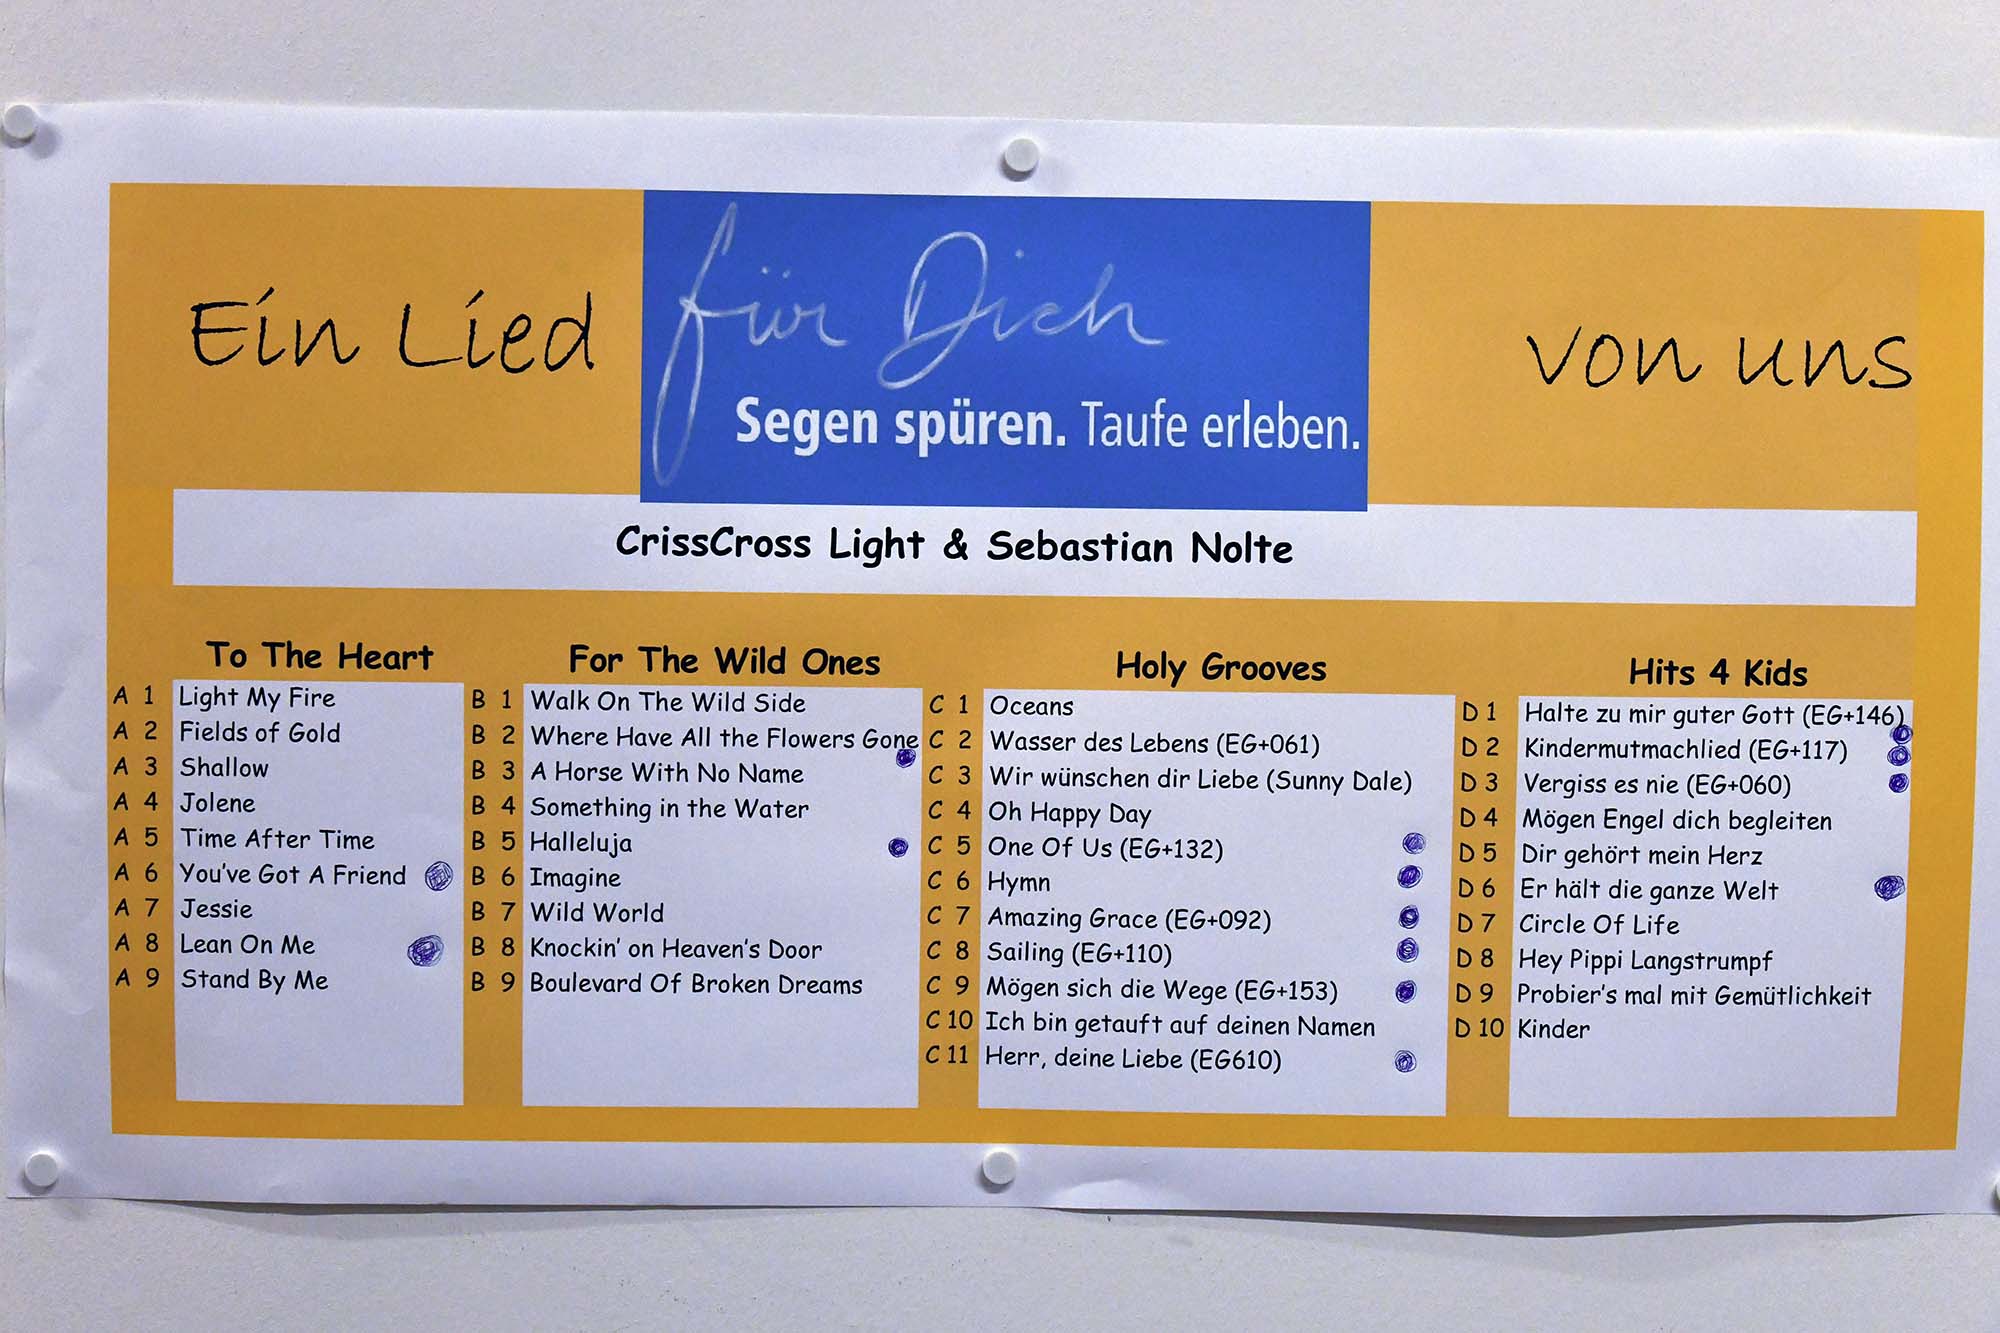 Ein Lied für Dich von uns
Segen spüren. Taufe erleben.
CrissCross Light & Sebastian Nolte
To The Heart
A 1 Light My Fire
A 2 Fields of Gold
A 3 Shallow
A 4 Jolene
A 5 Time After Time
A 6 You've Got A Friend
A 7 Jessie
A 8 Lean On Me
A 9 Stand By Me
For The Wild Ones
B 1 Walk On The Wild Side
B 2 Where Have All the Flowers Gone
B 3 A Horse With No Name
B 4 Something in the Water
B 5 Halleluja
B 6 Imagine
B 7 Wild World
B 8 Knockin' on Heaven's Door
B 9 Boulevard Of Broken Dreams
Holy Grooves
C 1 Oceans
C 2 Wasser des Lebens (EG+061)
C 3 Wir wünschen dir Liebe (Sunny Dale)
C 4 Oh Happy Day
C 5 One Of Us (EG+132)
C 6 Hymn
C 7 Amazing Grace (EG+092)
C 8 Sailing (EG+110)
C 9 Mögen sich die Wege (EG+153)
C 10 Ich bin getauft auf deinen Namen
C 11 Herr, deine Liebe (EG610)
Hits 4 Kids
D 1 Halte zu mir guter Gott (EG+146)
D 2 Kindermutmachlied (EG+117)
D 3 Vergiss es nie (EG+060)
D 4 Mögen Engel dich begleiten
D 5 Dir gehört mein Herz
D 6 Er hält die ganze Welt
D 7 Circle Of Life
D 8 Hey Pippi Langstrumpf
D 9 Probier's mal mit Gemütlichkeit
D 10 Kinder